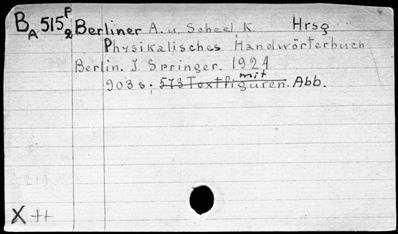 B A 515 P 2 Berliner A. u. Scheel K. Hrsg
Physikalisches Handwörterbuch
Berlin. J. Springer. 1924
903 s; 573 Textfiguren. mit Abb.
X ++